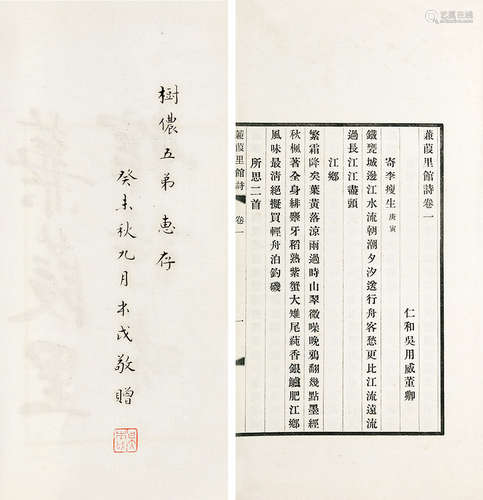 樹儂五弟惠存
癸未秋九月木戊敬贈
蒹葭里館詩卷一
仁和吳用威董卿
寄李瘦生庚寅
鐵甕城邊江水流朝潮夕汐送行舟客愁更比江流遠流
過長江江盡頭
江鄉
繁霜降矣葉黃落涼雨過時山翠微噪晚鴉翻幾點墨經
秋楓著全身緋檠牙稻熟紫蟹大雉尾蓴香銀鱸肥江鄉
風味最清絕擬買輕舟泊釣磯
所思二首
蒹葭里館詩
卷一
一